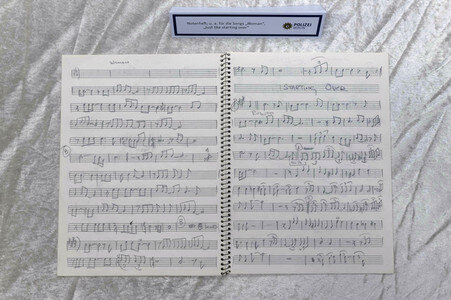 Notenheft, u. a. für die Songs „Woman",
„Just like starting over"
POLIZEI
BERLIN
WOMAN
STARTING OVER